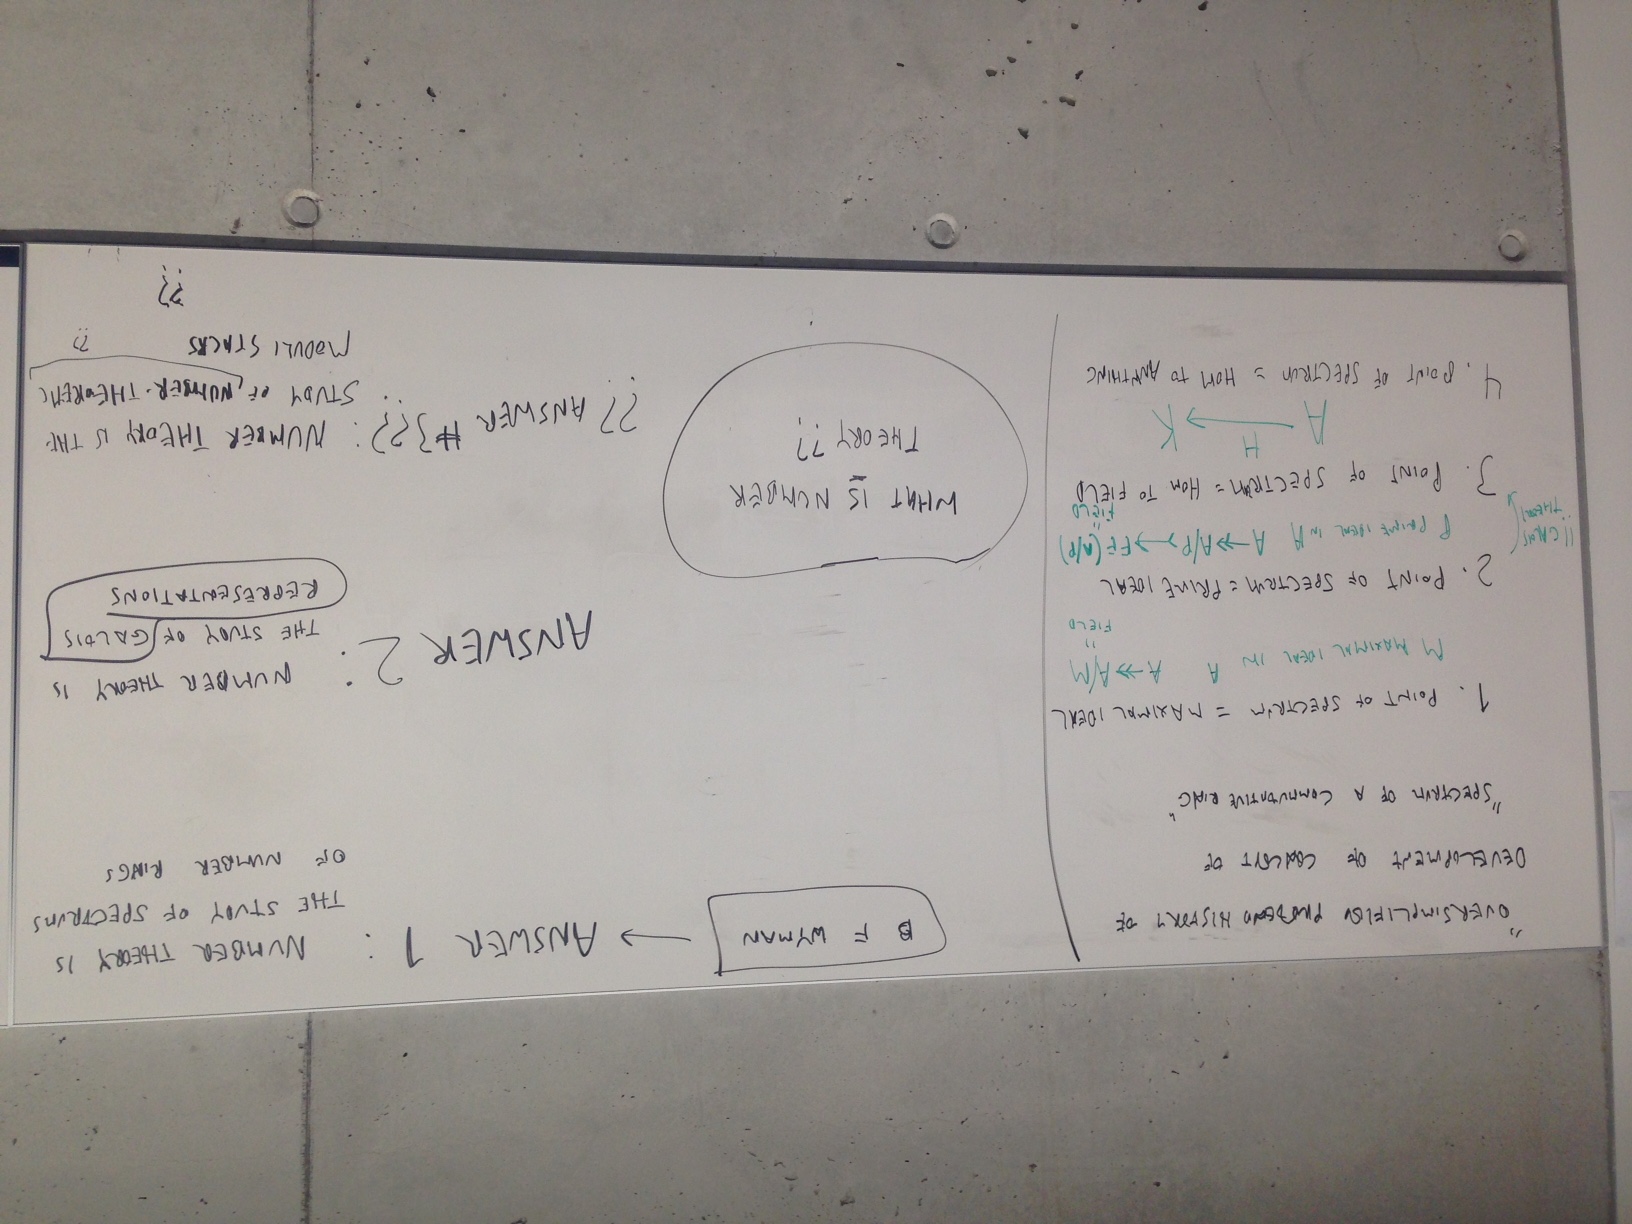 "OVERSIMPLIFIED HISTORY OF
DEVELOPMENT OF CONCEPT OF
"SPECTRUM OF A COMMUTATIVE RING"
1. POINT OF SPECTRUM = MAXIMAL IDEAL
M MAXIMAL IDEAL IN A A ↠ A/M
"
FIELD
2. POINT OF SPECTRUM = PRIME IDEAL
P PRIME IDEAL IN A A ↠ A/P ↣ FF(A/P)
"
FIELD
!! GALOIS
THEORY
3. POINT OF SPECTRUM = HOM TO FIELD
A H→ K
4. POINT OF SPECTRUM = HOM TO ANYTHING
B F WYMAN → ANSWER 1 : NUMBER THEORY IS
THE STUDY OF SPECTRUMS
OF NUMBER RINGS
ANSWER 2 : NUMBER THEORY IS
THE STUDY OF GALOIS
REPRESENTATIONS
WHAT IS NUMBER
THEORY ??
?? ANSWER #3 ?? : NUMBER THEORY IS THE
STUDY OF NUMBER-THEORETIC
MODULI STACKS ??
??